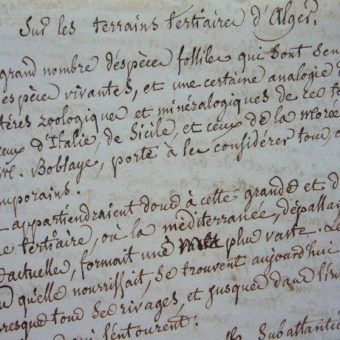 Sur les terrains tertiaire d'Alger.
grand nombre d'espèce fossile qui sont sem
espèce vivantes, et une certaine analogie d
tères zoologique et minéralogiques de ce te
ceux d'Italie, de Sicile, et ceux de la morée
Boblaye, porte à les considérer tous c
mporains.
appartiendraient donc à cette grande et d
tertiaire, où la méditerranée, dépassa
actuelle, formait une plus vaste. Le
qu'elle nourrissait, se trouvent aujourd'hui
resque tous ses rivages, et jusques dans l'in
l'entourent.
Subatlanti